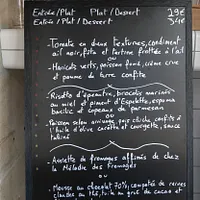 Entrée/Plat Plat/Dessert 29€
Entrée/Plat/Dessert 34€
Tomate en deux textures, condiment
ail noir, feta et tartine frottée à l'ail
ou
Haricots verts, poisson fumé, crème crue
et pomme de terre confite
Risotto d'épeautre, brocolis marinés
au miel et piment d'Espelette, espuma
basilic et copeaux de parmesan
ou
Poisson selon arrivage, pois chiche, confite à
l'huile d'olive carotte et courgette, sauce
Assiette de fromages affinés de chez
la Mélodie des Fromages
ou
Mousse au chocolat 70%, compotée de cerises
huile, tuile au grué de cacao et